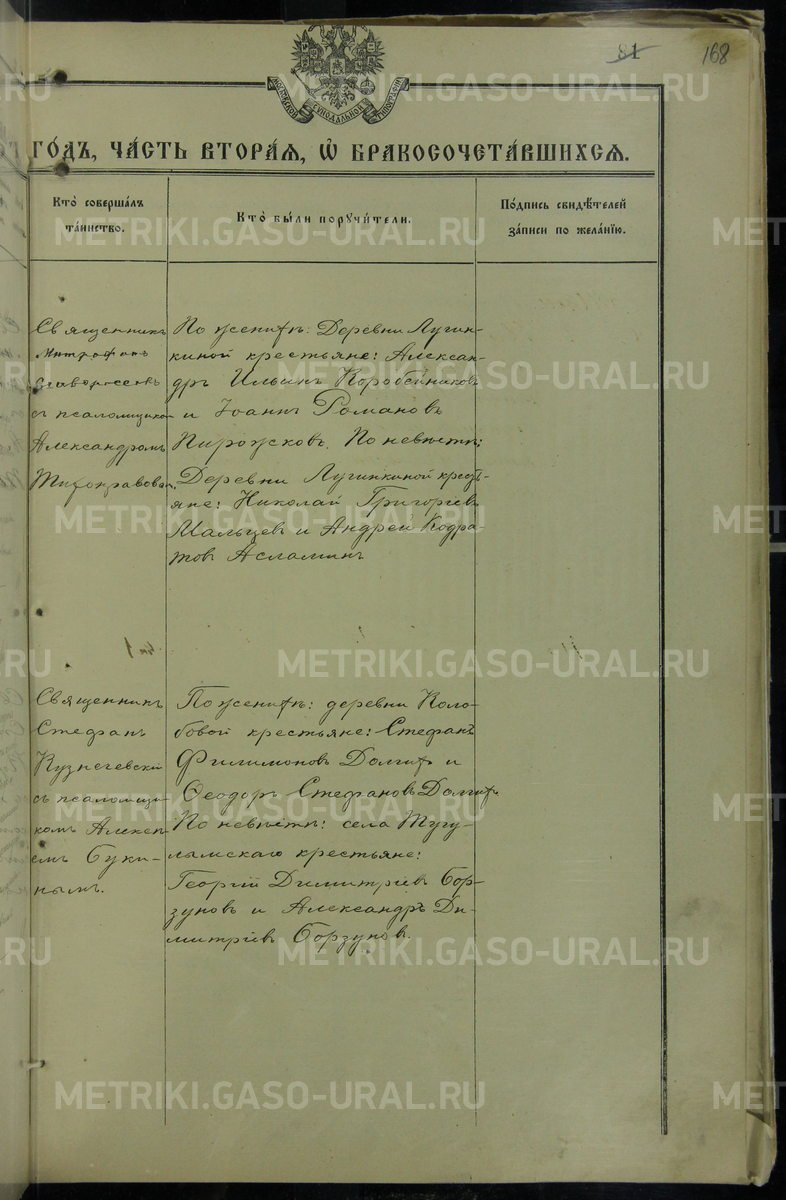 81 168
МОСКОВСКОЙ СѴНОДАЛЬНОЙ ТИПОГРАФІИ
ГО́ДЪ, ЧА́СТЬ ВТОРА́Я, Ѡ БРАКОСОЧЕТА́ВШИХСЯ.
Кто̀ соверша́лъ
та́инство.
Кто̀ бы́ли порꙋчи́тели.
По́дпись свидѣ́телей
за́писи по жела́нїю.
Священникъ
Митрофанъ
съ псаломщикомъ
Александромъ
Тихонравовым
По женихѣ: Деревни Лугин-
киной крестьяне: Алексан-
дръ Ильинъ Коробейниковъ
и Іоаннъ Романовъ
Пирожсковъ. По невѣстѣ:
Деревни Лугинкиной крестья-
яне: Николай Григорьевъ
Мальцев и Андрей Кодра-
товъ Асламинъ
Священникъ
Стефанъ
Кузнечевскій
съ псаломщи-
комъ Алексѣ-
емъ Буки-
нымъ.
По женихѣ: деревни Коло-
бовой крестьяне: Стефанъ
Филимоновъ Долгихъ и
Ѳеодоръ Стефановъ Долгихъ.
По невѣстѣ: села Тугу-
лымскаго крестьяне:
Георгій Димитріевъ Бор-
зуновъ и Александръ Ди-
митріевъ Борзуновъ.
METRIKI.GASO-URAL.RU